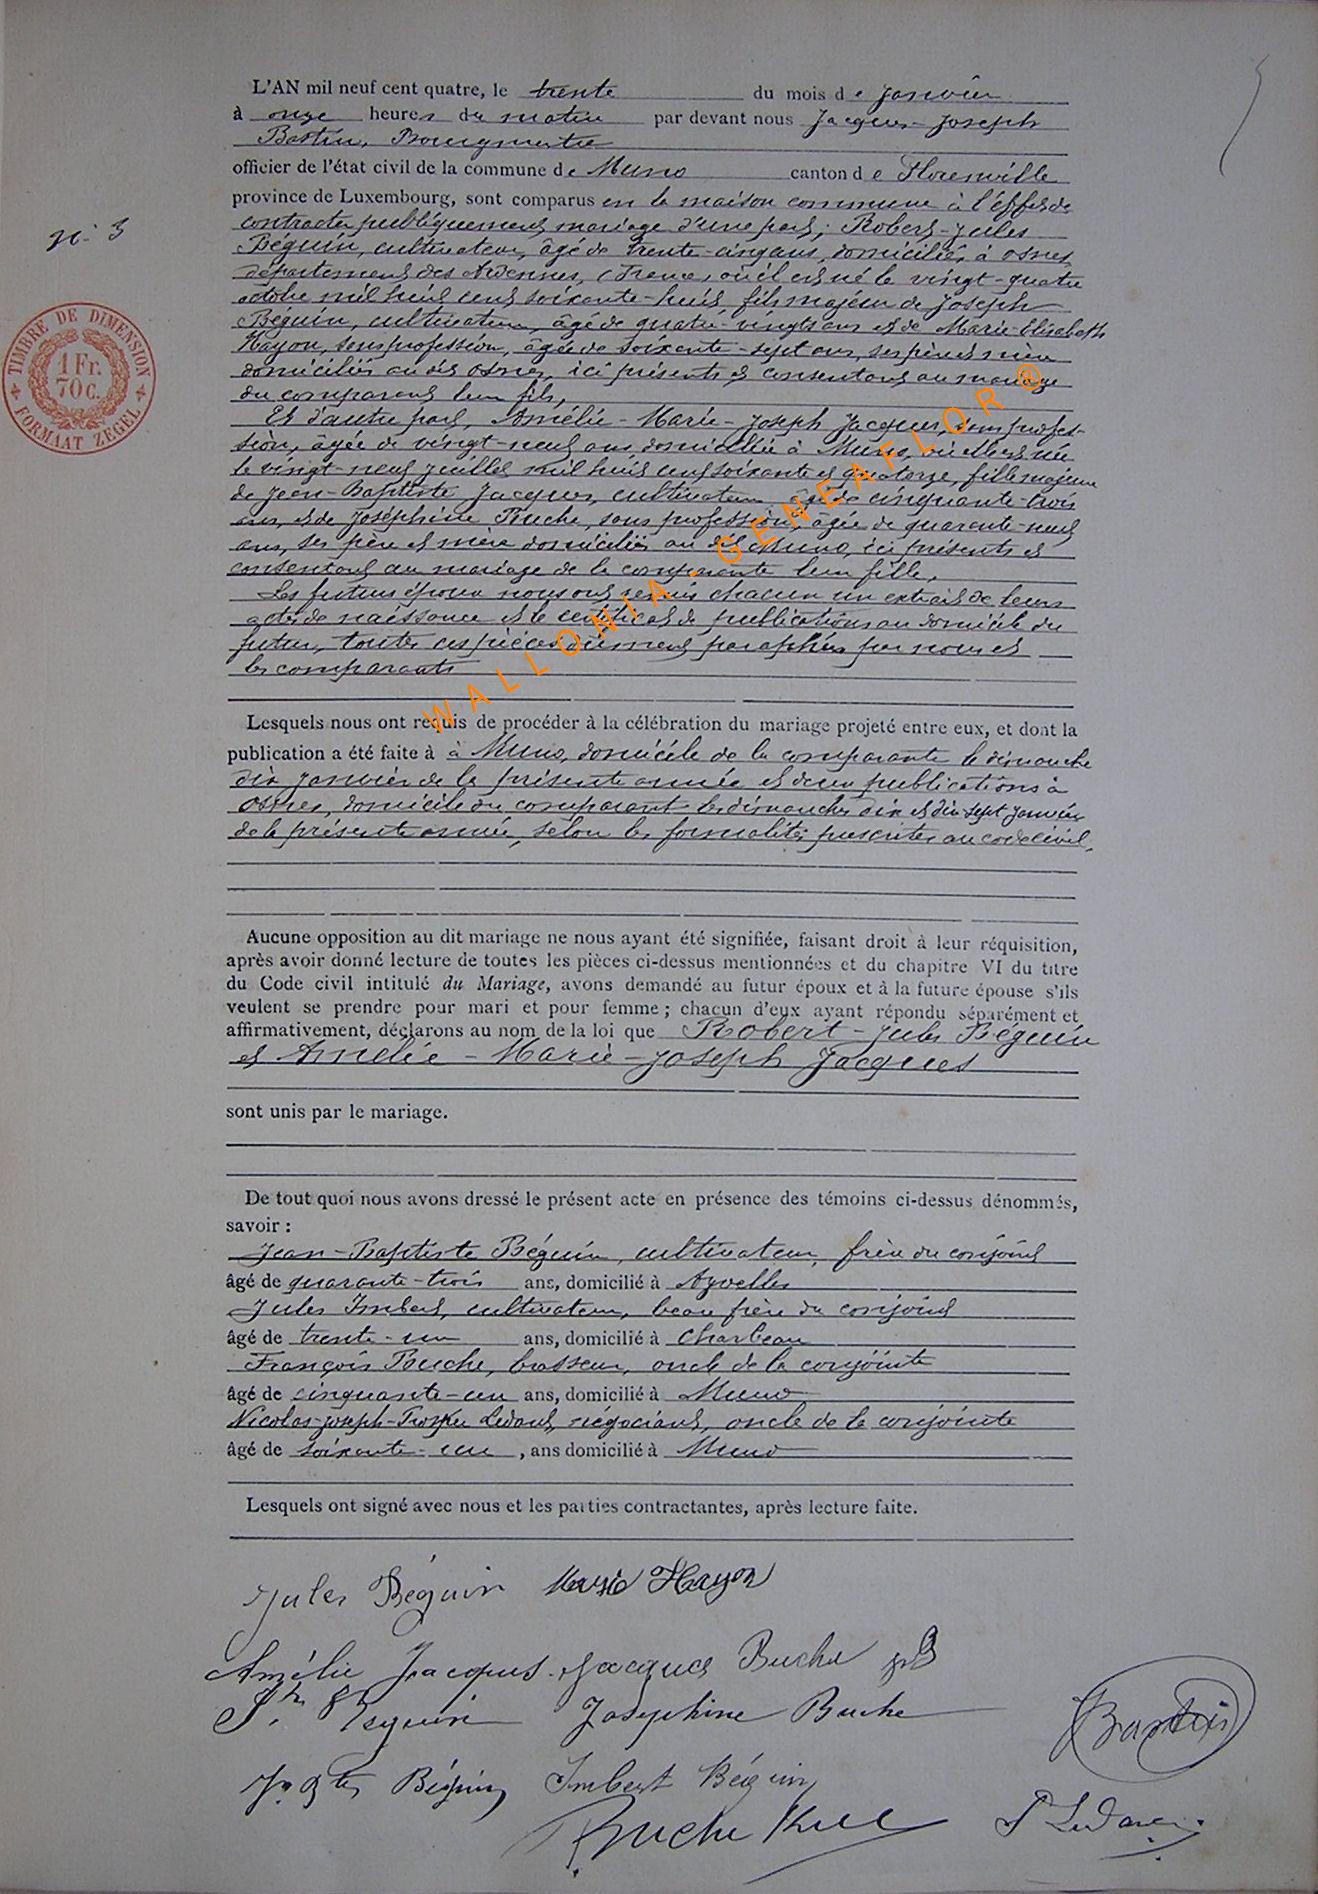 L'AN mil neuf cent quatre, le trente du mois de janvier
à onze heures du matin par devant nous Jacques-Joseph
Bastin, Bourgmestre
officier de l'état civil de la commune de Muno canton de Florenville
province de Luxembourg, sont comparus en la maison commune à l'effet de
N° 3
contracter publiquement mariage d'une part; Robert-Jules
Béguin, cultivateur, âgé de trente-cinq ans, domicilié à Osnes
département des Ardennes, (France) où il est né le vingt-quatre
octobre mil huit cent soixante-huit, fils majeur de Joseph
Béguin, cultivateur, âgé de quatre-vingts ans et de Marie-Elisabeth
Hayon, sans profession, âgée de soixante-sept ans, ses père et mère
domiciliés au dit Osnes, ici présents et consentant au mariage
du comparant leur fils,
TIMBRE DE DIMENSION
1 Fr.
70 c.
FORMAAT ZEGEL
Et d'autre part, Amélie-Marie-Joseph Jacques, sans profes-
sion, âgée de vingt-neuf ans, domiciliée à Muno, où elle est née
le vingt-neuf juillet mil huit cent soixante et quatorze, fille majeure
de Jean-Baptiste Jacques, cultivateur âgé de cinquante-trois
ans, et de Joséphine Buche, sans profession, âgée de quarante-neuf
ans, ses père et mère domiciliés au dit Muno, ici présents et
consentant au mariage de la comparante leur fille,
Les futurs époux nous ont remis chacun un extrait de leurs
actes de naissance et le certificat de publications au domicile du
futur, toutes ces pièces dûment paraphées par nous et
les comparants
WALLONIA-GENEAFLOR ®
Lesquels nous ont requis de procéder à la célébration du mariage projeté entre eux, et dont la
publication a été faite à à Muno, domicile de la comparante le dimanche
dix janvier de la présente année et deux publications à
Osnes, domicile du comparant les dimanches dix et dix-sept janvier
de la présente année, selon les formalités prescrites au code civil,
Aucune opposition au dit mariage ne nous ayant été signifiée, faisant droit à leur réquisition,
après avoir donné lecture de toutes les pièces ci-dessus mentionnées et du chapitre VI du titre
du Code civil intitulé du Mariage, avons demandé au futur époux et à la future épouse s'ils
veulent se prendre pour mari et pour femme ; chacun d'eux ayant répondu séparément et
affirmativement, déclarons au nom de la loi que Robert-Jules Béguin
et Amélie-Marie-Joseph Jacques
sont unis par le mariage.
De tout quoi nous avons dressé le présent acte en présence des témoins ci-dessus dénommés,
savoir :
Jean-Baptiste Béguin, cultivateur, frère du conjoint
âgé de quarante-trois ans, domicilié à Ayvelles
Jules Imbert, cultivateur, beau frère du conjoint
âgé de trente-un ans, domicilié à Charbeau
François Buche, brasseur, oncle de la conjointe
âgé de cinquante-un ans, domicilié à Muno
Nicolas-Joseph-Prosper Ledant, négociant, oncle de la conjointe
âgé de soixante-un, ans domicilié à Muno
Lesquels ont signé avec nous et les parties contractantes, après lecture faite.
Jules Béguin Marie Hayon
Amélie Jacques. Jacques Buche
Béguin Joséphine Buche
Bastin
Béguin Imbert Béguin
Buche